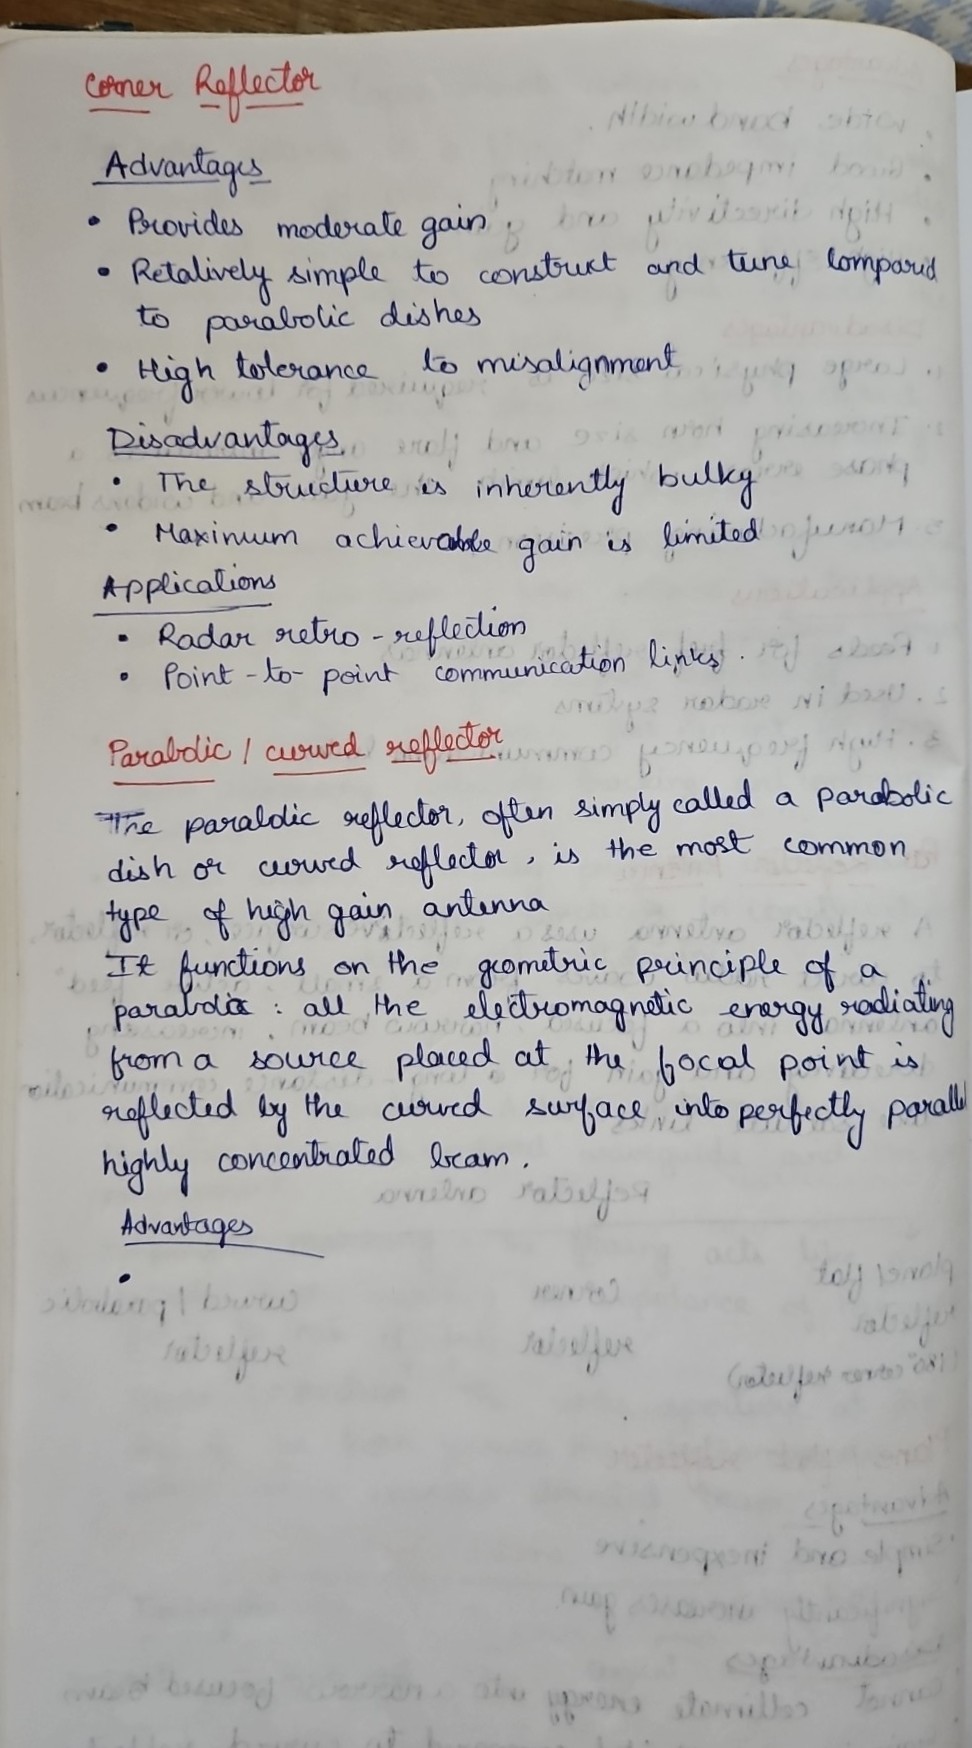 Corner Reflector
Advantages
• Provides moderate gain
• Retalively simple to construct and tune compared
to parabolic dishes
• High tolerance to misalignment
Disadvantages
• The structure is inherently bulky
• Maximum achievable gain is limited
Applications
• Radar retro-reflection
• Point-to-point communication links.
Parabolic / curved reflector
The paraldic reflector, often simply called a parabolic
dish or curved reflector, is the most common
type of high gain antenna
It functions on the geometric principle of a
parabola: all the electromagnetic energy radiating
from a source placed at the focal point is
reflected by the curved surface into perfectly parallel
highly concentrated beam.
Advantages
•